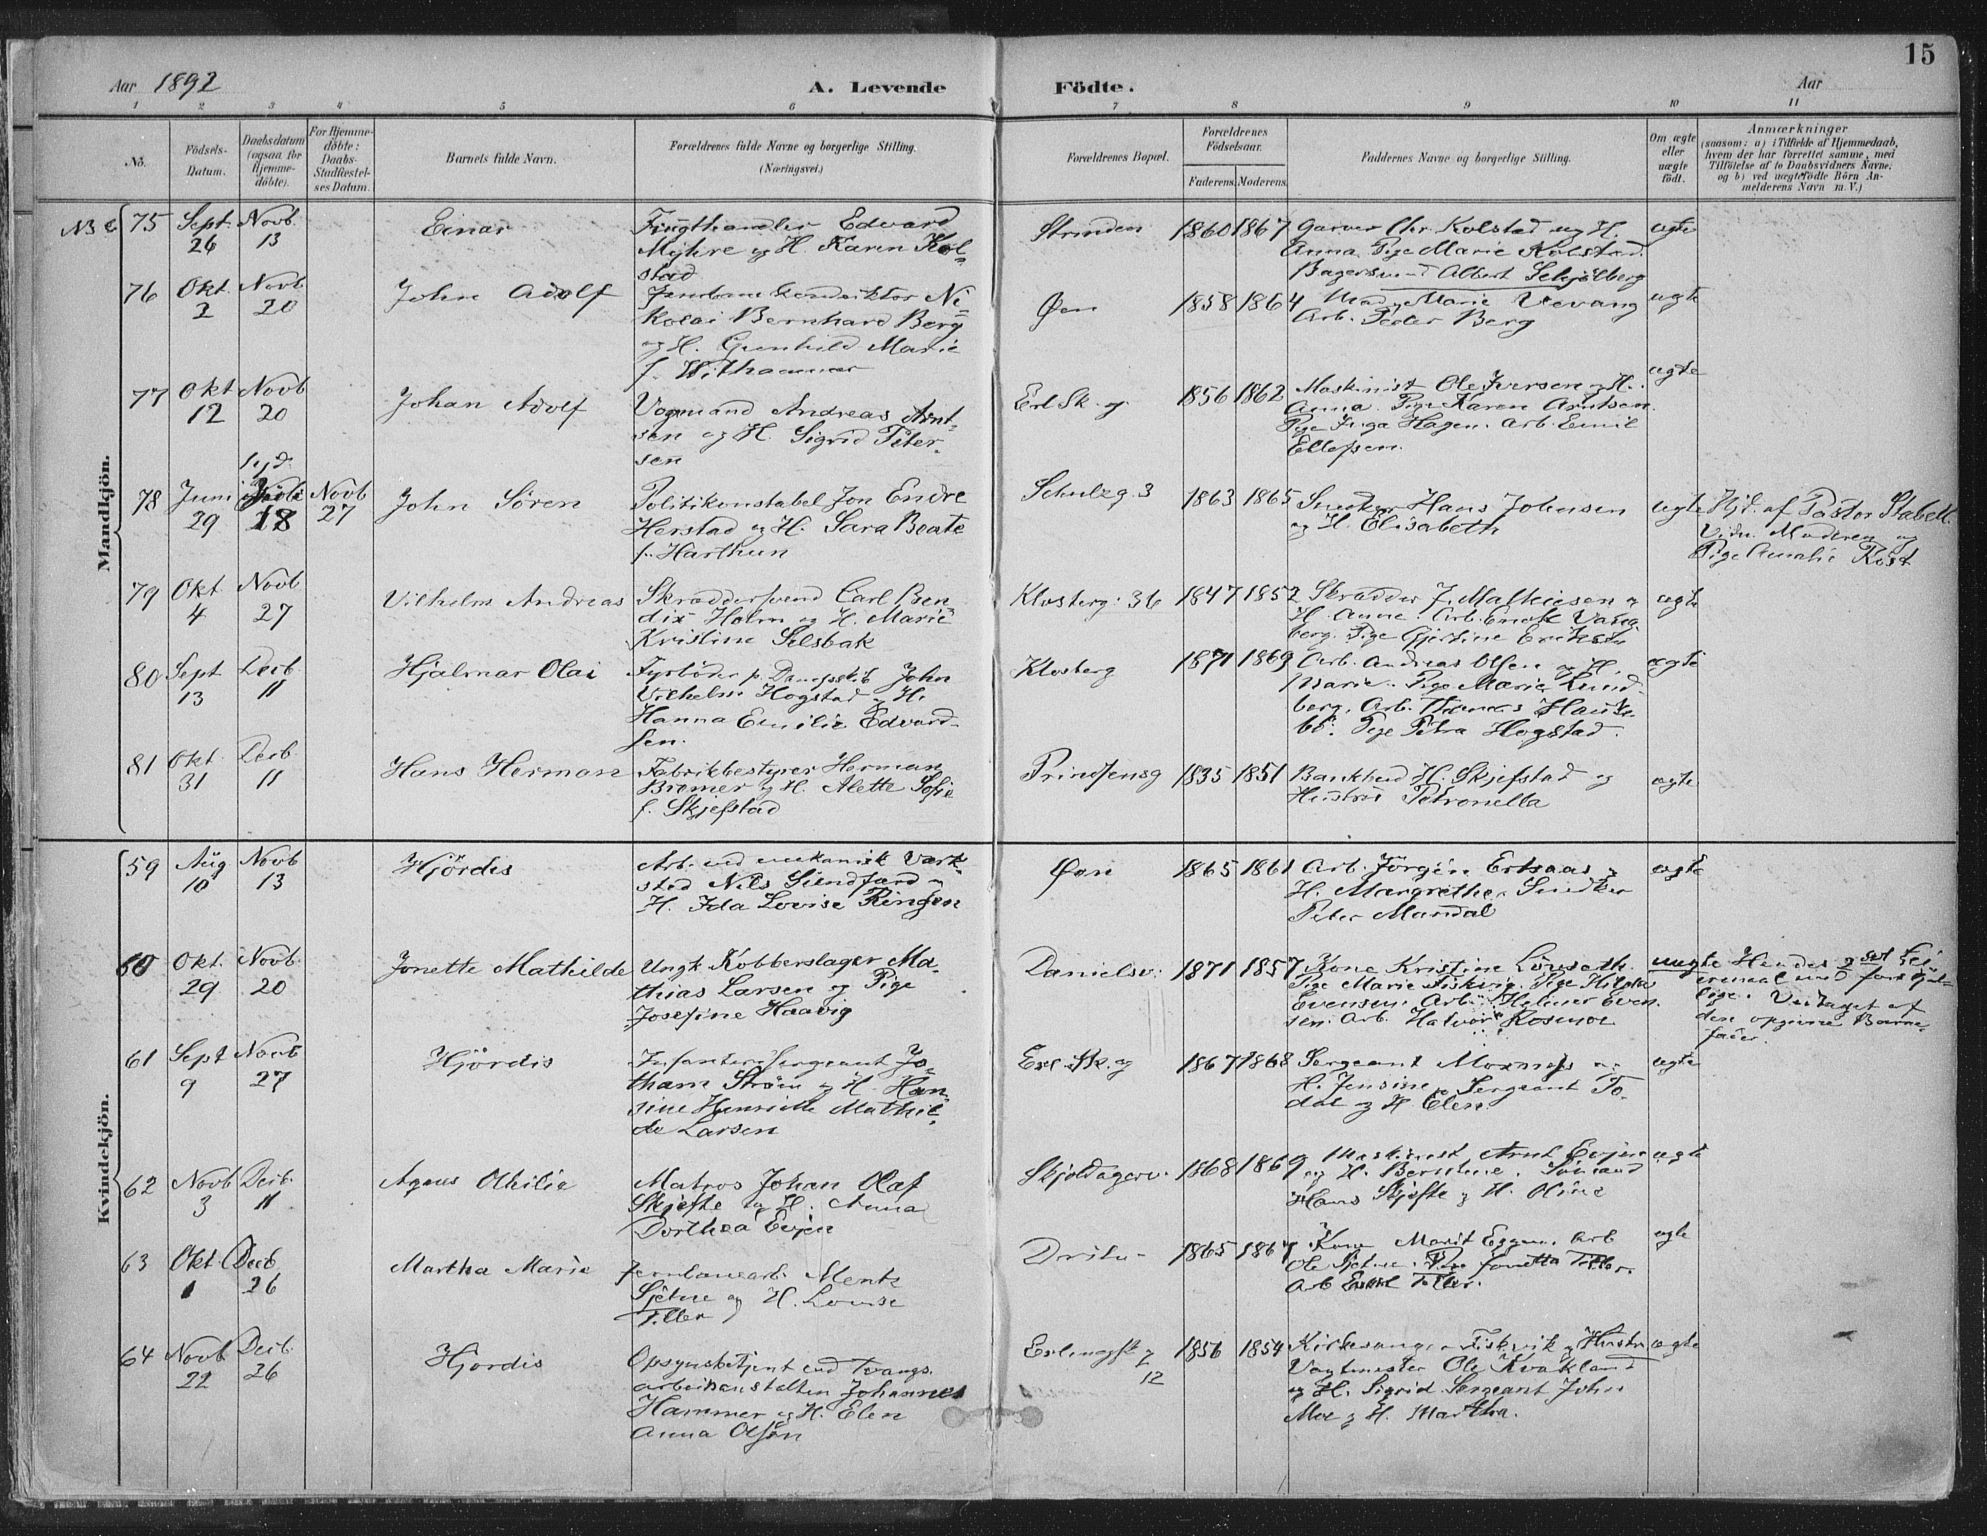 15
Aar 1892 A. Levende Födte. Aar
1 2 3 4 5 6 7 8 9 10 11
No.
Födsels-Datum.
Daabsdatum (ogsaa for Hjemme-döbte).
For Hjemme-döbte: Daabs-Stadfæstel-ses Datum.
Barnets fulde Navn.
Forældrenes fulde Navne og borgerlige Stilling. (Næringsvei.)
Forældrenes Bopæl.
Forældrenes Födselsaar.
Faderens. Moderens.
Faddernes Navne og borgerlige Stilling.
Om ægte eller uægte födt.
Anmærkninger
(saasom: a) i Tilfælde af Hjemmedaab, hvem der har forrettet samme, med Tilföielse af to Daabsvidners Navne; og b) ved uægtefödte Börn An-melderens Navn m. V.)
Mandkjön.
75 Sept. 26 Novb. 13 Einar
Edvard
Myhre og H. Karen Kol-
stad
Strinden 1860 1867
Garver Chr. Kolstad og H.
Anna. Pige Marie Kolstad.
Albert Schjölberg
ægte
76 Okt. 2 Novb 20 John Adolf
Jernbanekonduktör Ni-
kolai Bernhard Berg
og H. Gunhild Marie
f. Withammer
Öen 1858 1864
Marie Vevang
Arb. Peder Berg
ægte
77 Okt 12 Novb 20 Johan Adolf
Vognmand Andreas Arnt-
sen og H. Sigrid Peter-
sen
Erl Sk. g. 1856 1862
Maskinist Ole Iversen og H.
Anna. Pige Karen Arntsen.
Pige Inga Hagen. Arb. Emil
Ellefsen.
ægte
78 Juni 29 Juli 18 Novb 27 John Sören
Politikonstabel Jon Endre
Herstad og H. Sara Beate
f. Harthun
Schulzg. 3 1863 1865
Snedker Hans Johnsen
og H. Elisabeth
ægte
Hjd. af Pastor Stabell.
Vidn. Moderen og
Pige Amalie Kost
79 Okt 4 Novb 27 Vilhelm Andreas
Skræddersvend Carl Ben
dix Holm og H. Marie
Kristine Selsbak
Klosterg. 36 1847 1852
Skrædder J. Mathiesen og
H. Anne. Arb. Enok Vang
berg. Pige Gjertine Eriksen
ægte
80 Sept 13 Decb. 11 Hjalmar Olai
Fyrböder p. Dampskib John
Vilhelm Hogstad og H.
Hanna Emilie Edvard-
sen.
Klosterg 1871 1869
Arb. Andreas Olsen og H.
Marie. Pige Marie Lund-
berg. Arb. Thomas
Pige Petra Hogstad.
ægte
81 Okt. 31 Decb. 11 Hans Herman
Fabrikbestyrer Herman
Bromer og H. Alette Sofie
f. Skjefstad
Prindsensg 1835 1851
H. Skjefstad og
Hustru Petronella
ægte
Kvindekjön.
59 Aug 10 Novb 13 Hjördis
Arb. ved mekanisk Værk
sted Nils Sundfærd og
H. Ida Lovise Ringen
Öen 1865 1861
Arb. Jörgen Ertsaas og
H. Margrethe. Snedker
Peter Mandal
ægte
60 Okt. 29 Novb. 20 Jonette Mathilde
Ungk Kobberslager Ma-
thias Larsen og Pige
Josefine Haavig
Danielsv. 1871 1857
Kone Kristine Löuseth.
Pige Marie Fiskvig. Pige Hilda
Evensen. Arb. Helmer Even
sen. Arb. Halvor Rosmoe
uægte
Hendes 2det Lei
ermaal med forskjel-
lige. Vedtaget af
den opgivne Barne-
fader.
61 Sept 9 Novb 27 Hjördis
Infanterisergeant Jo-
tham Ström og H. Han-
sine Henriette Mathil-
de Larsen
Erl. Sk. g 1867 1868
Sergeant Moxness og
H. Jensine. Sergeant To-
dal og H Elen.
ægte
62 Novb 3 Decb. 11 Agnes Othilie
Matros Johan Olaf
Skjefte og H. Anna
Dorthea Evjen
Skjoldagerv. 1868 1869
Maskinist Arnt Evjen
og H. Berntine. Sömand
Hans Skjefte og H. Oline
ægte
63 Okt. 1 Decb 26 Martha Marie
Jernbanearb. Mentz
Sjetne og H. Lovise
Tiller
1865 1867
Kone Marit Eggen. Arb
Ole Sjetne. Pige Jonetta Tiller.
Arb Tiller.
ægte
64 Novb 22 Decb. 26 Hjördis
Opsynsbetjent ved Tvangs-
arbeidsanstalten Johannes
Hammer og H. Elen
Anna Olsen
Erlingsk g 12 1856 1854
Kirkesanger Fiskvik og Hustru
Vagtmester Ole Kvakland
og H. Sigrid. Sergeant John
Moe og H. Martha.
ægte